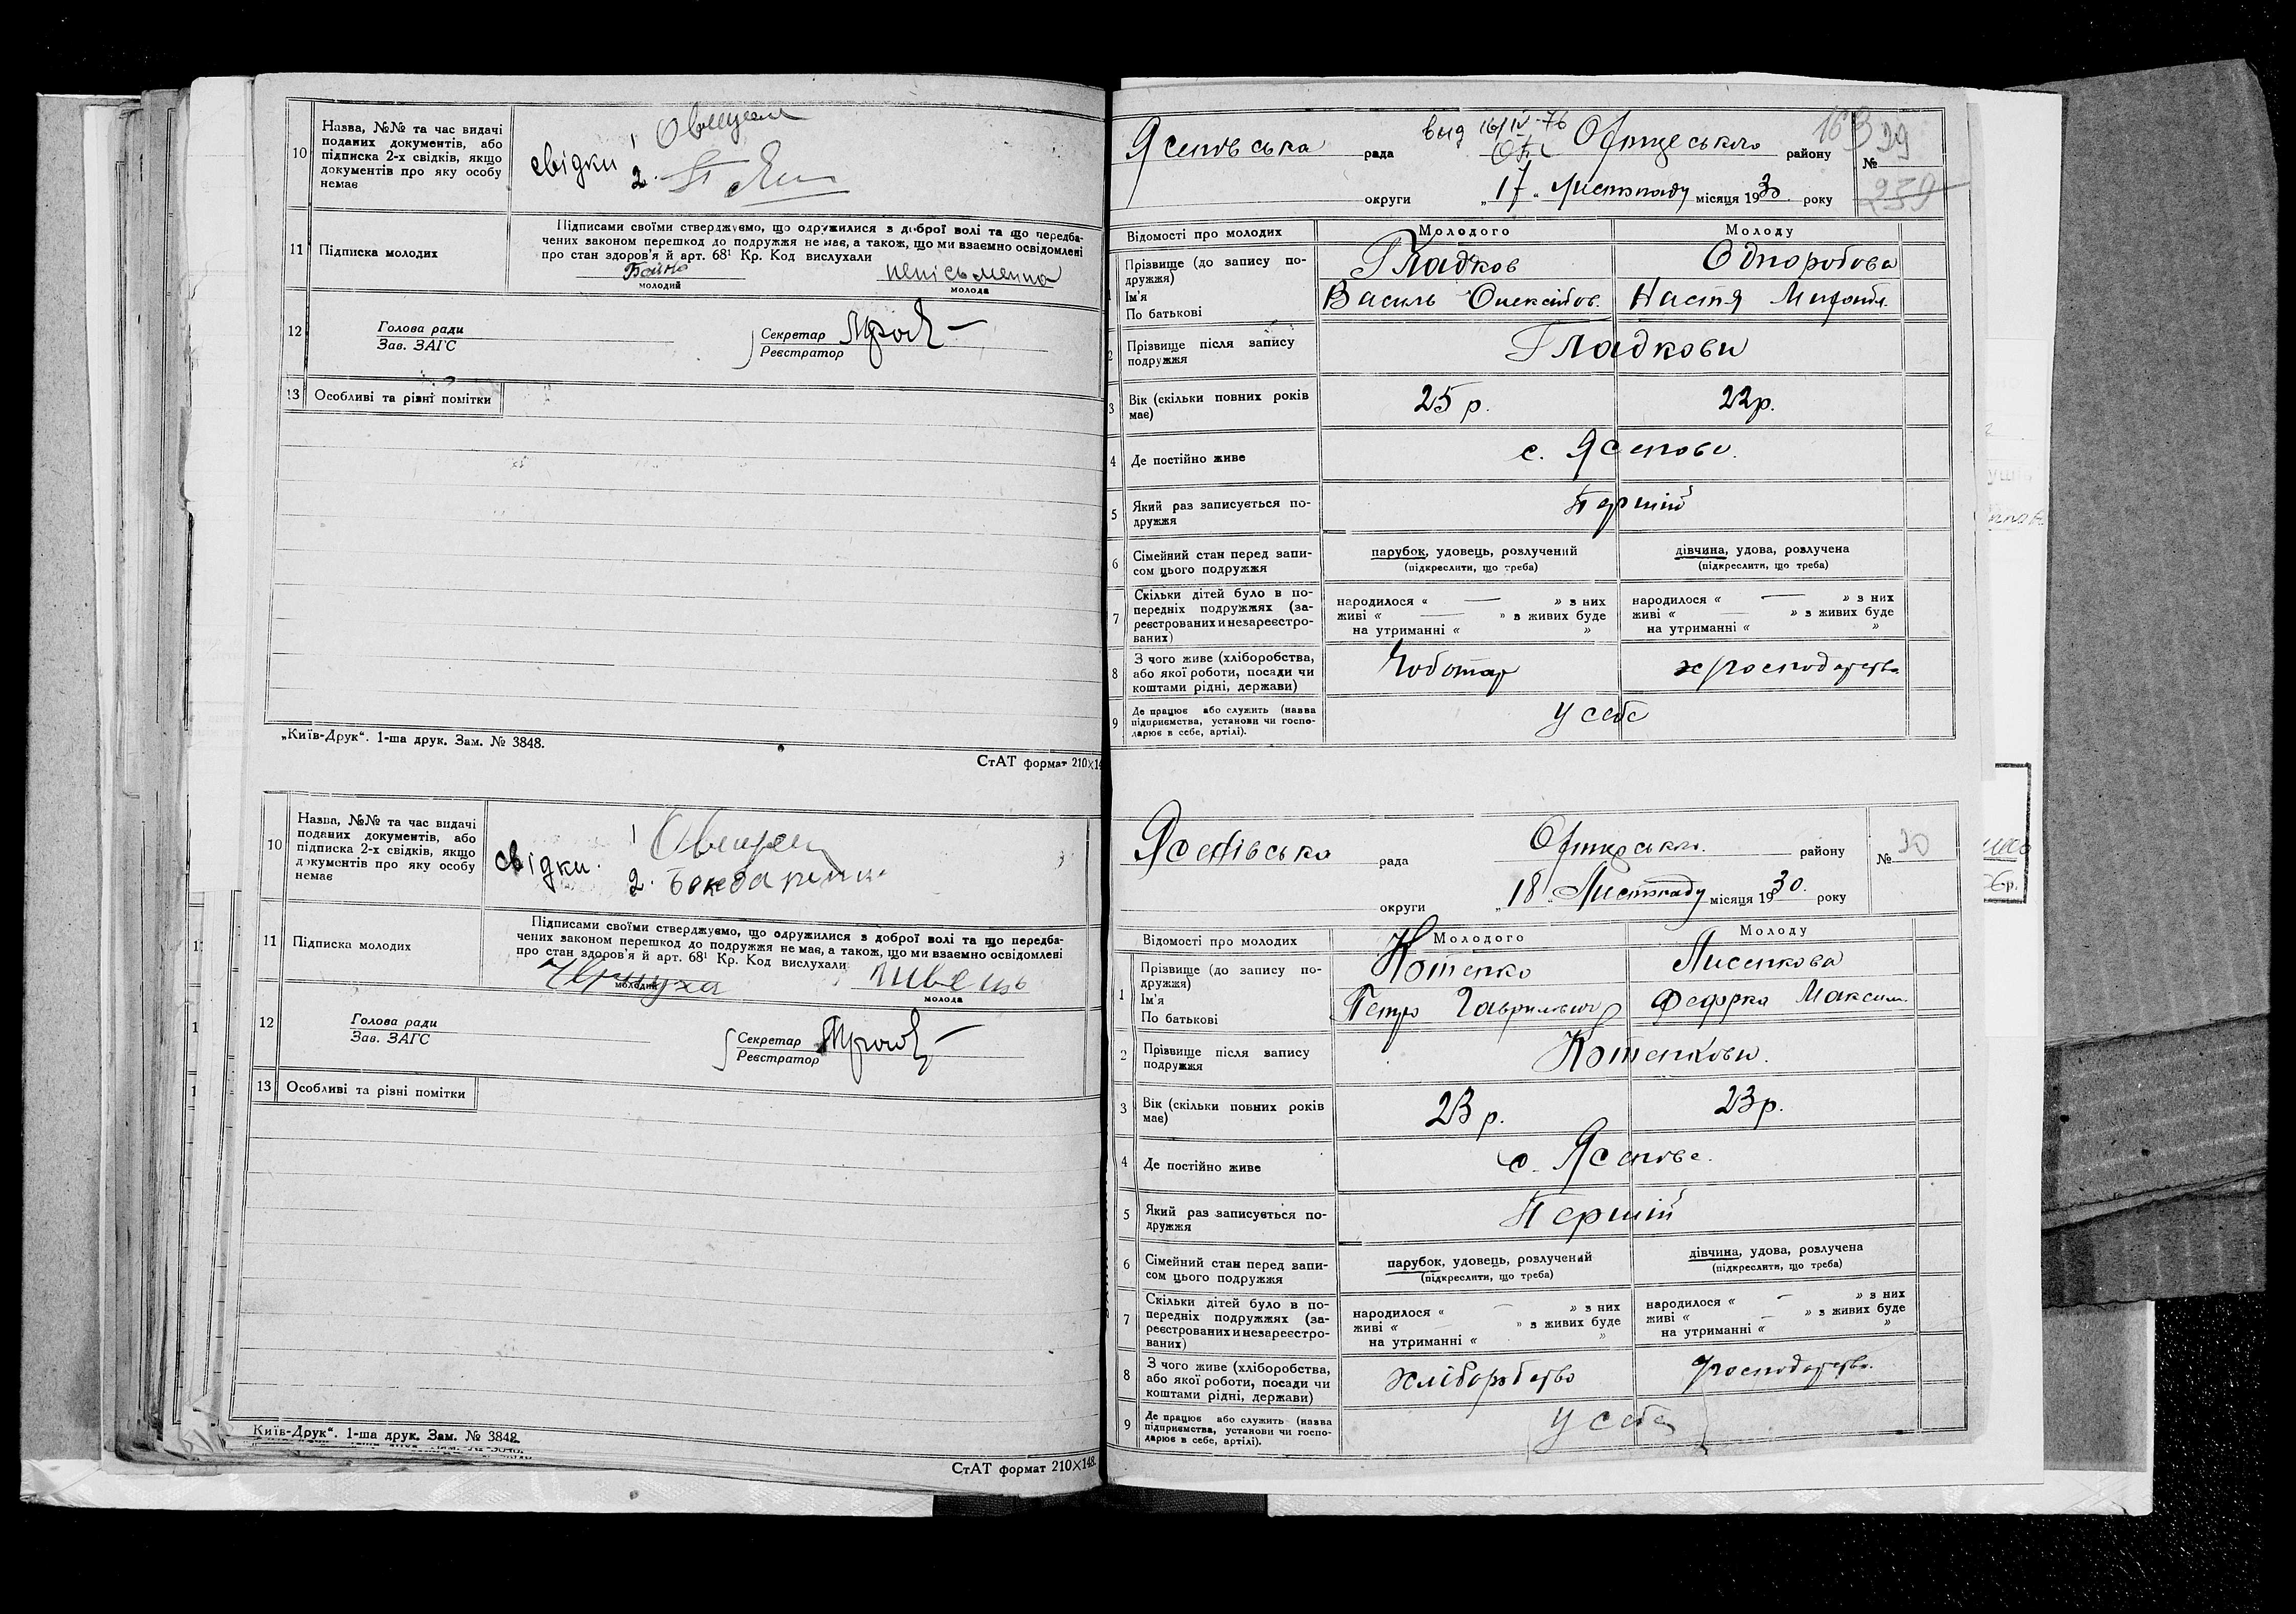 10
Назва, №№ та час видачі
поданих документів, або
підписка 2-х свідків, якщо
документів про яку особу
немає
свідки
1
2.
11
Підписка молодих
Підписами своїми стверджуємо, що одружилися з доброї волі та що передба-
чених законом перешкод до подружжя не має, а також, що ми взаємно освідомлені
про стан здоров'я й арт. 68¹ Кр. Код вислухали
Бойко
молодий
неписьменна
молода
12
Голова ради
Зав. ЗАГС
Секретар
Реєстратор
13 Особливі та різні помітки
„Київ-Друк“. 1-ша друк. Зам. № 3848.
СтАТ формат 210×14
10
Назва, №№ та час видачі
поданих документів, або
підписка 2-х свідків, якщо
документів про яку особу
немає
свідки.
1
2. Бондаренко
11
Підписка молодих
Підписами своїми стверджуємо, що одружилися з доброї волі та що передба-
чених законом перешкод до подружжя не має, а також, що ми взаємно освідомлені
про стан здоров'я й арт. 68¹ Кр. Код вислухали
молодий
Швець
молода
12
Голова ради
Зав. ЗАГС
Секретар
Реєстратор
13 Особливі та різні помітки
Київ-Друк“. 1-ша друк. Зам. № 3848.
СтАТ формат 210×148.
выд 16/IV-76
163
Ясенівська рада району
№ 29
239
округи „17“ Листопаду місяця 1930 року
Відомості про молодих Молодого Молоду
1 Прізвище (до запису по-
дружжя)
Гладков Одноробова
Ім'я
По батькові
Василь Настя
2 Прізвище після запису
подружжя
Гладкови
3 Вік (скільки повних років
має)
25 р. 22 р.
4 Де постійно живе
с. Ясенове.
5 Який раз записується по-
дружжя
Перший
6 Сімейний стан перед запи-
сом цього подружжя
парубок, удовець, розлучений
(підкреслити, що треба)
дівчина, удова, розлучена
(підкреслити, що треба)
7 Скільки дітей було в по-
передніх подружжях (за-
реєстрованих и незареєстро-
ваних)
народилося « — » з них
живі « — » з живих буде
на утриманні « »
народилося « — » з них
живі « — » з живих буде
на утриманні « »
8 З чого живе (хліборобства,
або якої роботи, посади чи
коштами рідні, держави)
Чоботар
9 Де працює або служить (назва
підприємства, установи чи госпо-
дарює в себе, артілі).
у себе
Ясенівська рада району
№ 30
округи „18“ Листопаду місяця 1930. року
Відомості про молодих Молодого Молоду
1 Прізвище (до запису по-
дружжя)
Котенко Лисенкова
Ім'я
По батькові
Петро Гаврилович Федорка Максим.
2 Прізвище після запису
подружжя
Котенкови.
3 Вік (скільки повних років
має)
23 р. 23 р.
4 Де постійно живе
с. Ясенове.
5 Який раз записується по-
дружжя
Перший
6 Сімейний стан перед запи-
сом цього подружжя
парубок, удовець, розлучений
(підкреслити, що треба)
дівчина, удова, розлучена
(підкреслити, що треба)
7 Скільки дітей було в по-
передніх подружжях (за-
реєстрованих и незареєстро-
ваних)
народилося « — » з них
живі « » з живих буде
на утриманні « »
народилося « — » з них
живі « — » з живих буде
на утриманні « »
8 З чого живе (хліборобства,
або якої роботи, посади чи
коштами рідні, держави)
хліборобство господарство.
9 Де працює або служить (назва
підприємства, установи чи госпо-
дарює в себе, артілі).
у себе